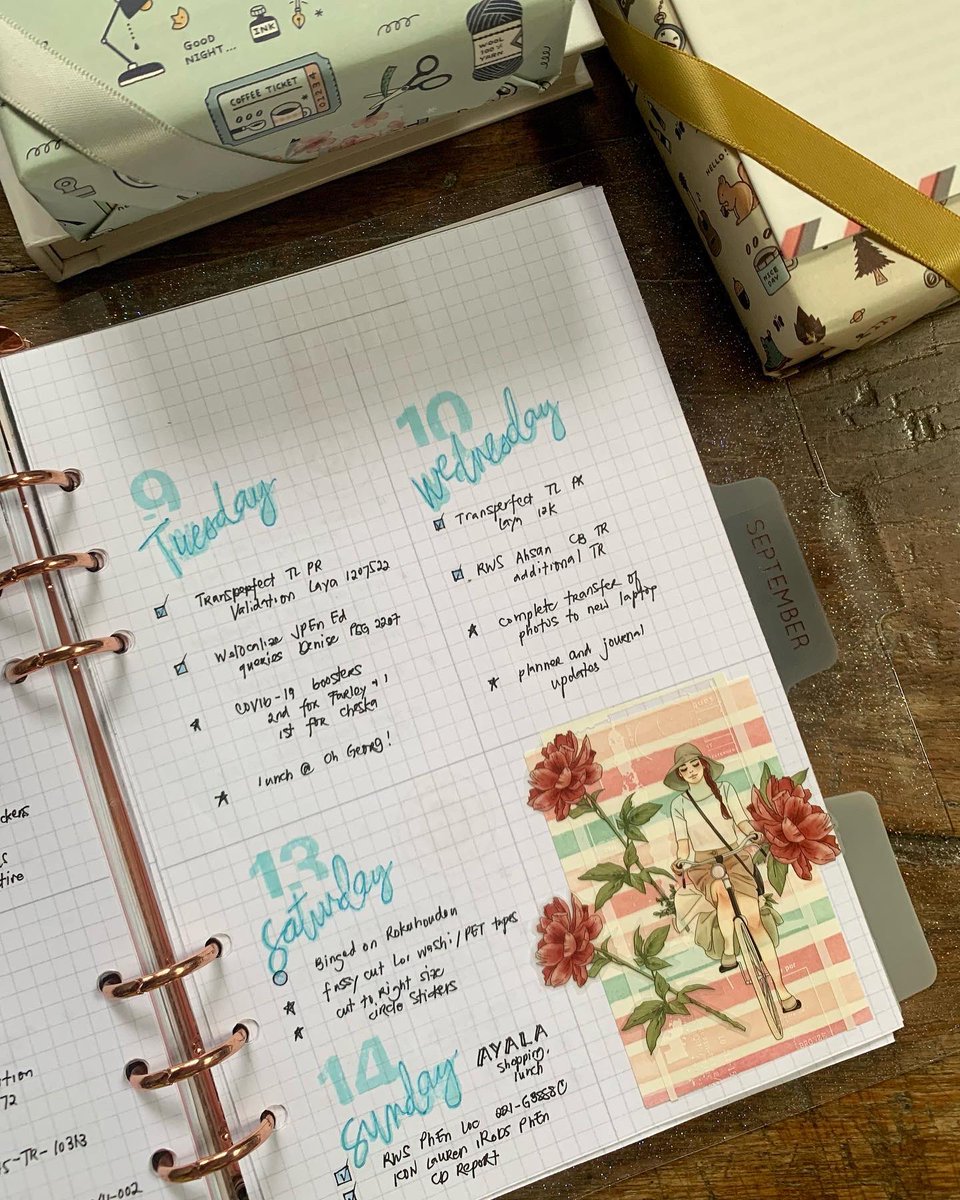 GOOD
NIGHT...
INK
COFFEE TICKET
01234
WOOL
100%
YARN
HELLO
NICE
DAY
SEPTEMBER
9
Tuesday
Transperfect TL PR
Validation Laya 1207522
Welocalize JPEn Ed
queries Denise PSG 2207
COVID-19 boosters
2nd for Farley +
1st for Cheska
lunch @ Oh Georg!
10
Wednesday
Transperfect TL PR
Laya 12K
RWS Ahsan CB TR
additional TR
complete transfer of
photos to new laptop
planner and journal
updates
13
Saturday
Binged on Rokuhoudou
fussy cut LOL washi/PET tapes
cut to right size
circle stickers
14
Sunday
AYALA
shopping,
lunch
RWS PhEn LOC
ICON Lauren iRobs PhEn
CD Report
ckers
tire
tion
72
5-TR-10313
-002